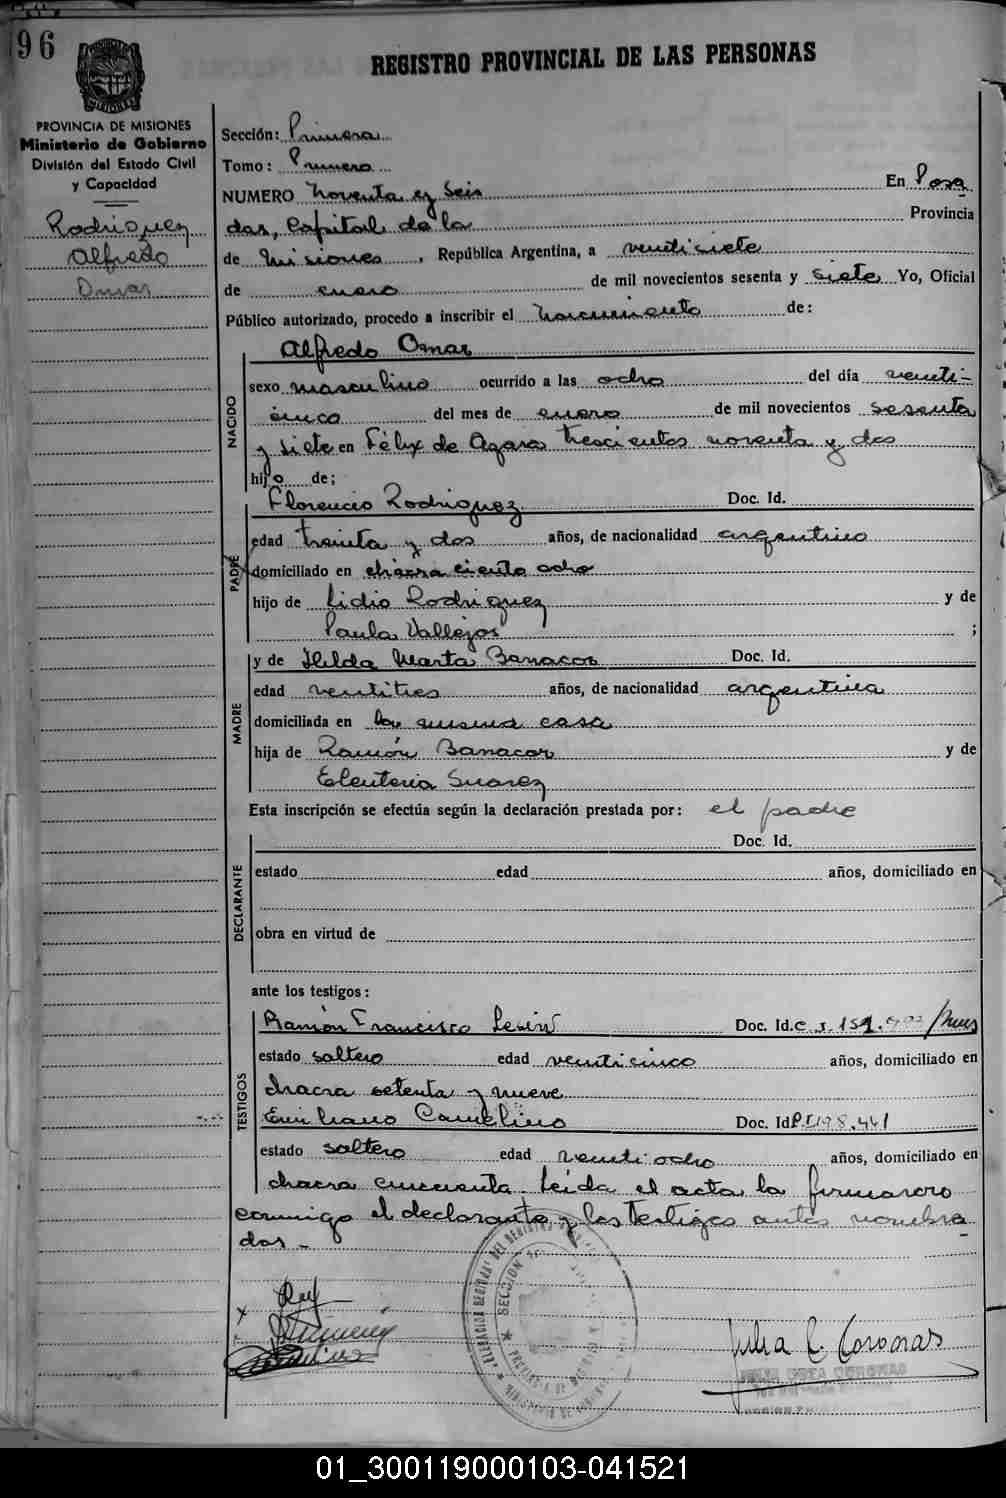 96
REGISTRO PROVINCIAL DE LAS PERSONAS
PROVINCIA DE MISIONES
Ministerio de Gobierno
División del Estado Civil
y Capacidad
Rodriguez
Alfredo
Omar
Sección: Primera
Tomo: Primero
NUMERO noventa y seis En Posa
das, Capital de la Provincia
de Misiones, República Argentina, a ventisiete
de enero de mil novecientos sesenta y siete Yo, Oficial
Público autorizado, procedo a inscribir el nacimiento de:
NACIDO
Alfredo Omar
sexo masculino ocurrido a las ocho del día venti-
cinco del mes de enero de mil novecientos sesenta
y siete en Félix de Azara trescientos noventa y dos
hijo de;
PADRE
Florencio Rodriguez Doc. Id.
edad treinta y dos años, de nacionalidad argentino
domiciliado en chacra ciento ocho
hijo de Lidio Rodriguez y de
Paula Vallejos ;
MADRE
y de Hilda Marta Banacor Doc. Id.
edad ventitres años, de nacionalidad argentina
domiciliada en la misma casa
hija de Ramón Banacor y de
Eleuteria Suarez
Esta inscripción se efectúa según la declaración prestada por: el padre
DECLARANTE
Doc. Id.
estado edad años, domiciliado en
obra en virtud de
ante los testigos:
TESTIGOS
Ramón Francisco Doc. Id.
estado soltero edad venticinco años, domiciliado en
chacra setenta y nueve
Emiliano Doc. Id
estado soltero edad ventiocho años, domiciliado en
chacra cincuenta Leida el acta la firmaron
conmigo el declarante y los testigos antes nombra
dos -
Julia E. Coronas
01_300119000103-041521